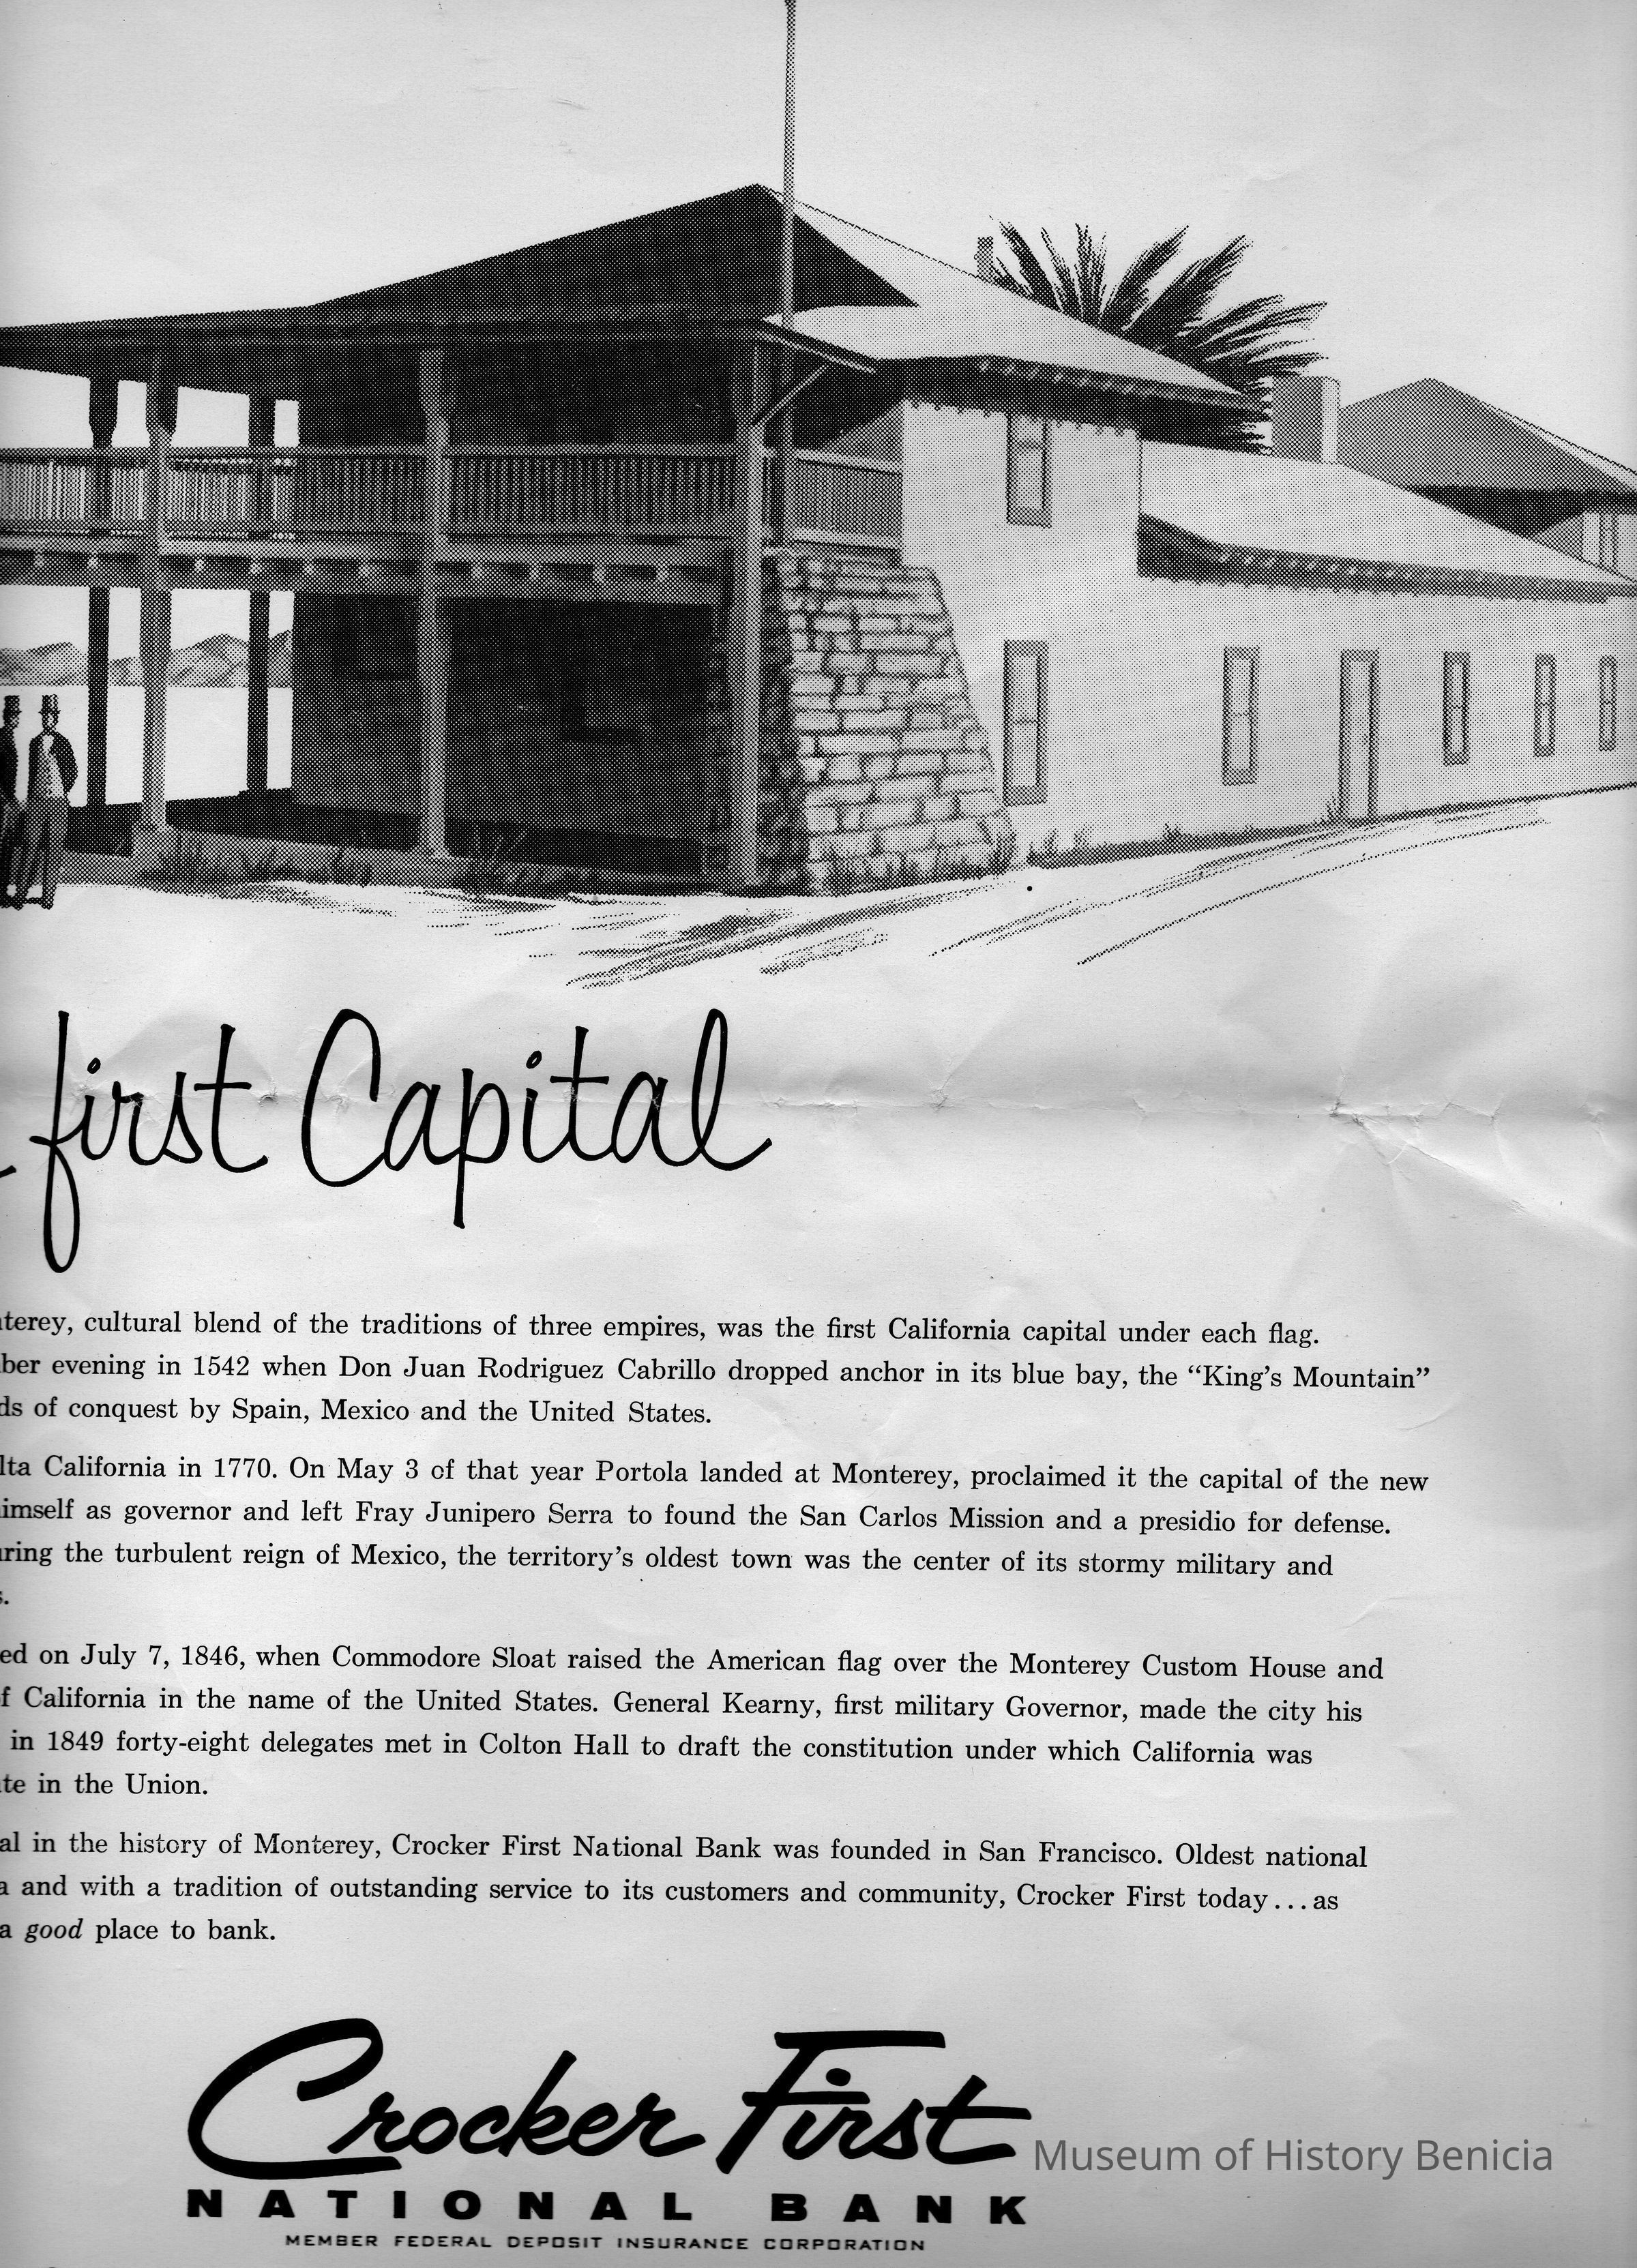 first Capital
terey, cultural blend of the traditions of three empires, was the first California capital under each flag.
ber evening in 1542 when Don Juan Rodriguez Cabrillo dropped anchor in its blue bay, the “King’s Mountain”
ds of conquest by Spain, Mexico and the United States.
lta California in 1770. On May 3 of that year Portola landed at Monterey, proclaimed it the capital of the new
imself as governor and left Fray Junipero Serra to found the San Carlos Mission and a presidio for defense.
ring the turbulent reign of Mexico, the territory’s oldest town was the center of its stormy military and
s.
ed on July 7, 1846, when Commodore Sloat raised the American flag over the Monterey Custom House and
f California in the name of the United States. General Kearny, first military Governor, made the city his
in 1849 forty-eight delegates met in Colton Hall to draft the constitution under which California was
te in the Union.
al in the history of Monterey, Crocker First National Bank was founded in San Francisco. Oldest national
a and with a tradition of outstanding service to its customers and community, Crocker First today...as
a good place to bank.
Crocker First
NATIONAL BANK
MEMBER FEDERAL DEPOSIT INSURANCE CORPORATION
Museum of History Benicia